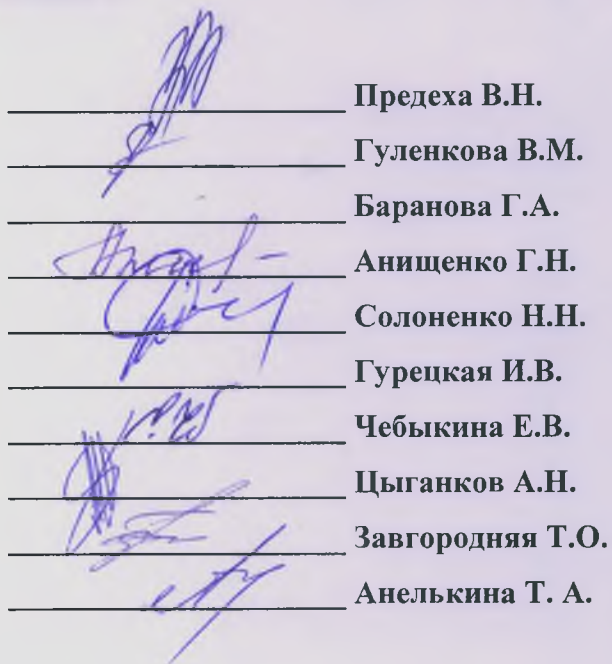 Предеха В.Н.
Гуленкова В.М.
Баранова Г.А.
Анищенко Г.Н.
Солоненко Н.Н.
Гурецкая И.В.
Чебыкина Е.В.
Цыганков А.Н.
Завгородняя Т.О.
Анелькина Т. А.